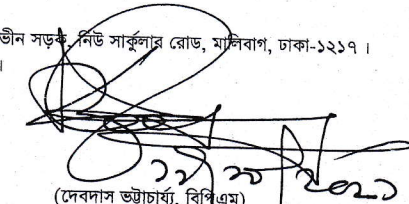 ভীন সড়ক, নিউ সার্কুলার রোড, মালিবাগ, ঢাকা-১২১৭ ।
।
(দেবদাস ভট্টাচার্য্য, বিপিএম)